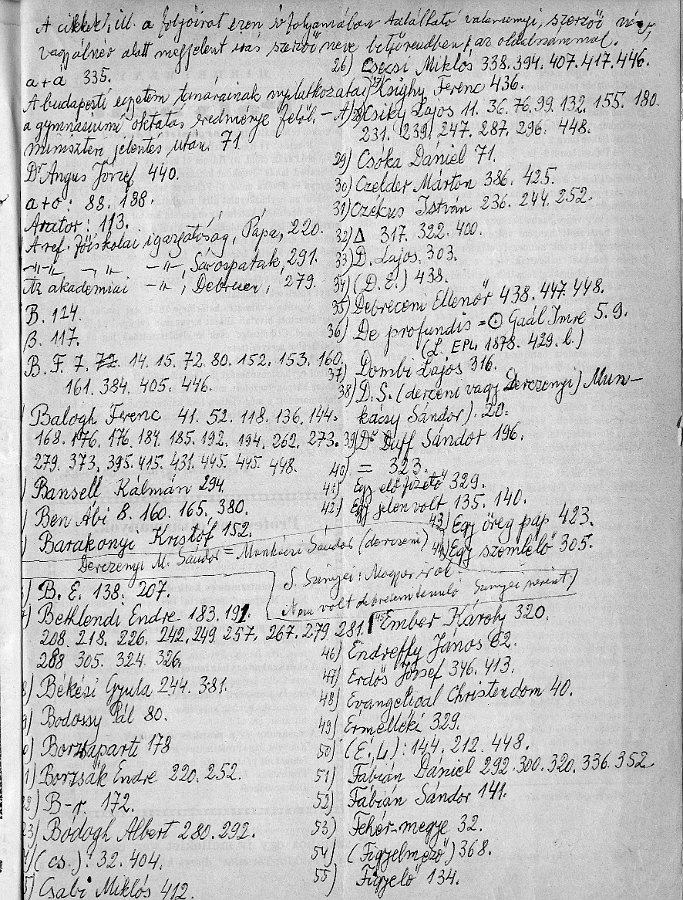 A cikkek, ill. a folyóirat ezen évfolyamában található valamennyi, szerzői név,
vagy álnév alatt megjelent írás szerző neve betűrendben, az oldalszámmal.
a+a 335.
A budapesti egyetem tanárainak nyilatkozatai
a gymnasiumi oktatás eredménye felől. – A
miniszteri jelentés után. 71.
Dr Angus József 440.
a+o: 88. 188.
Arator: 113.
A ref. főiskolai igazgatóság, Pápa, 220.
–"– –"– –"–, Sárospatak, 291.
Az akadémiai –"–, Debrecen, 279.
B. 124.
β. 117.
B. F. 7. 14. 15. 72. 80. 152. 153. 160.
161. 384. 405. 446.
Balogh Ferenc 41. 52. 118. 136. 144.
168. 176. 176. 184. 185. 192. 194. 262. 273.
279. 373. 395. 415. 431. 445. 445. 448.
Bansell Kálmán 294.
Ben Ábi 8. 160. 165. 380.
Barakonyi Kristóf 152.
Derczenyi M. Sándor = Munkácsi Sándor (derczeni)
B. E. 138. 207.
Bethlendi Endre 183. 191.
208. 218. 226. 242. 249. 257. 267. 279. 281.
288 305. 324. 326.
Békési Gyula 244. 381.
Bodossy Pál 80.
Borzsáparti 178
Borzsák Endre 220. 252.
B–r. 172.
23) Bodogh Albert 280. 292.
(cs.): 32. 404.
Csabi Miklós 412.
26) Csécsi Miklós 338. 394. 407. 417. 446.
Ferenc 436.
Csiky Lajos 11. 36. 76. 99. 132. 155. 180.
231. 239. 247. 287. 296. 448.
29) Csóka Dániel 71.
30) Czelder Márton 386. 425.
31) Czékus István 236. 244. 252.
32) Δ 317. 322. 400.
33) D. Lajos. 303.
34) (D. E.) 438.
35) Debreczeni Ellenőr 438. 447. 448.
36) De profundis = ⊙ Gaál Imre 5. 9.
(L. EPL. 1878. 429. l.)
37) Dombi Lajos 316.
38) D. S. (derczeni vagy Derczenyi) Mun-
kácsy Sándor). 20.
39) Dr Duff Sándor 196.
40) = 323.
41) "Egy előfizető" 329.
42) Egy jelen volt 135. 140.
43) Egy öreg pap 423.
44) "Egy szemlélő" 305.
S. Szinyei: Magyar írók.
Apa volt debreceni tanuló Szinyei szerint)
Ember Károly 320.
46) Endreffy János 62.
47) Erdős József 346. 413.
48) Evangelical Christendom 40.
49) Érmelléki 329.
50) (É. L.): 144. 212. 448.
51) Fábián Dániel 292. 300. 320. 336. 352.
52) Fábián Sándor 141.
53) Fehér-megye 32.
54) (Figyelmező) 368.
55) Figyelő 134.